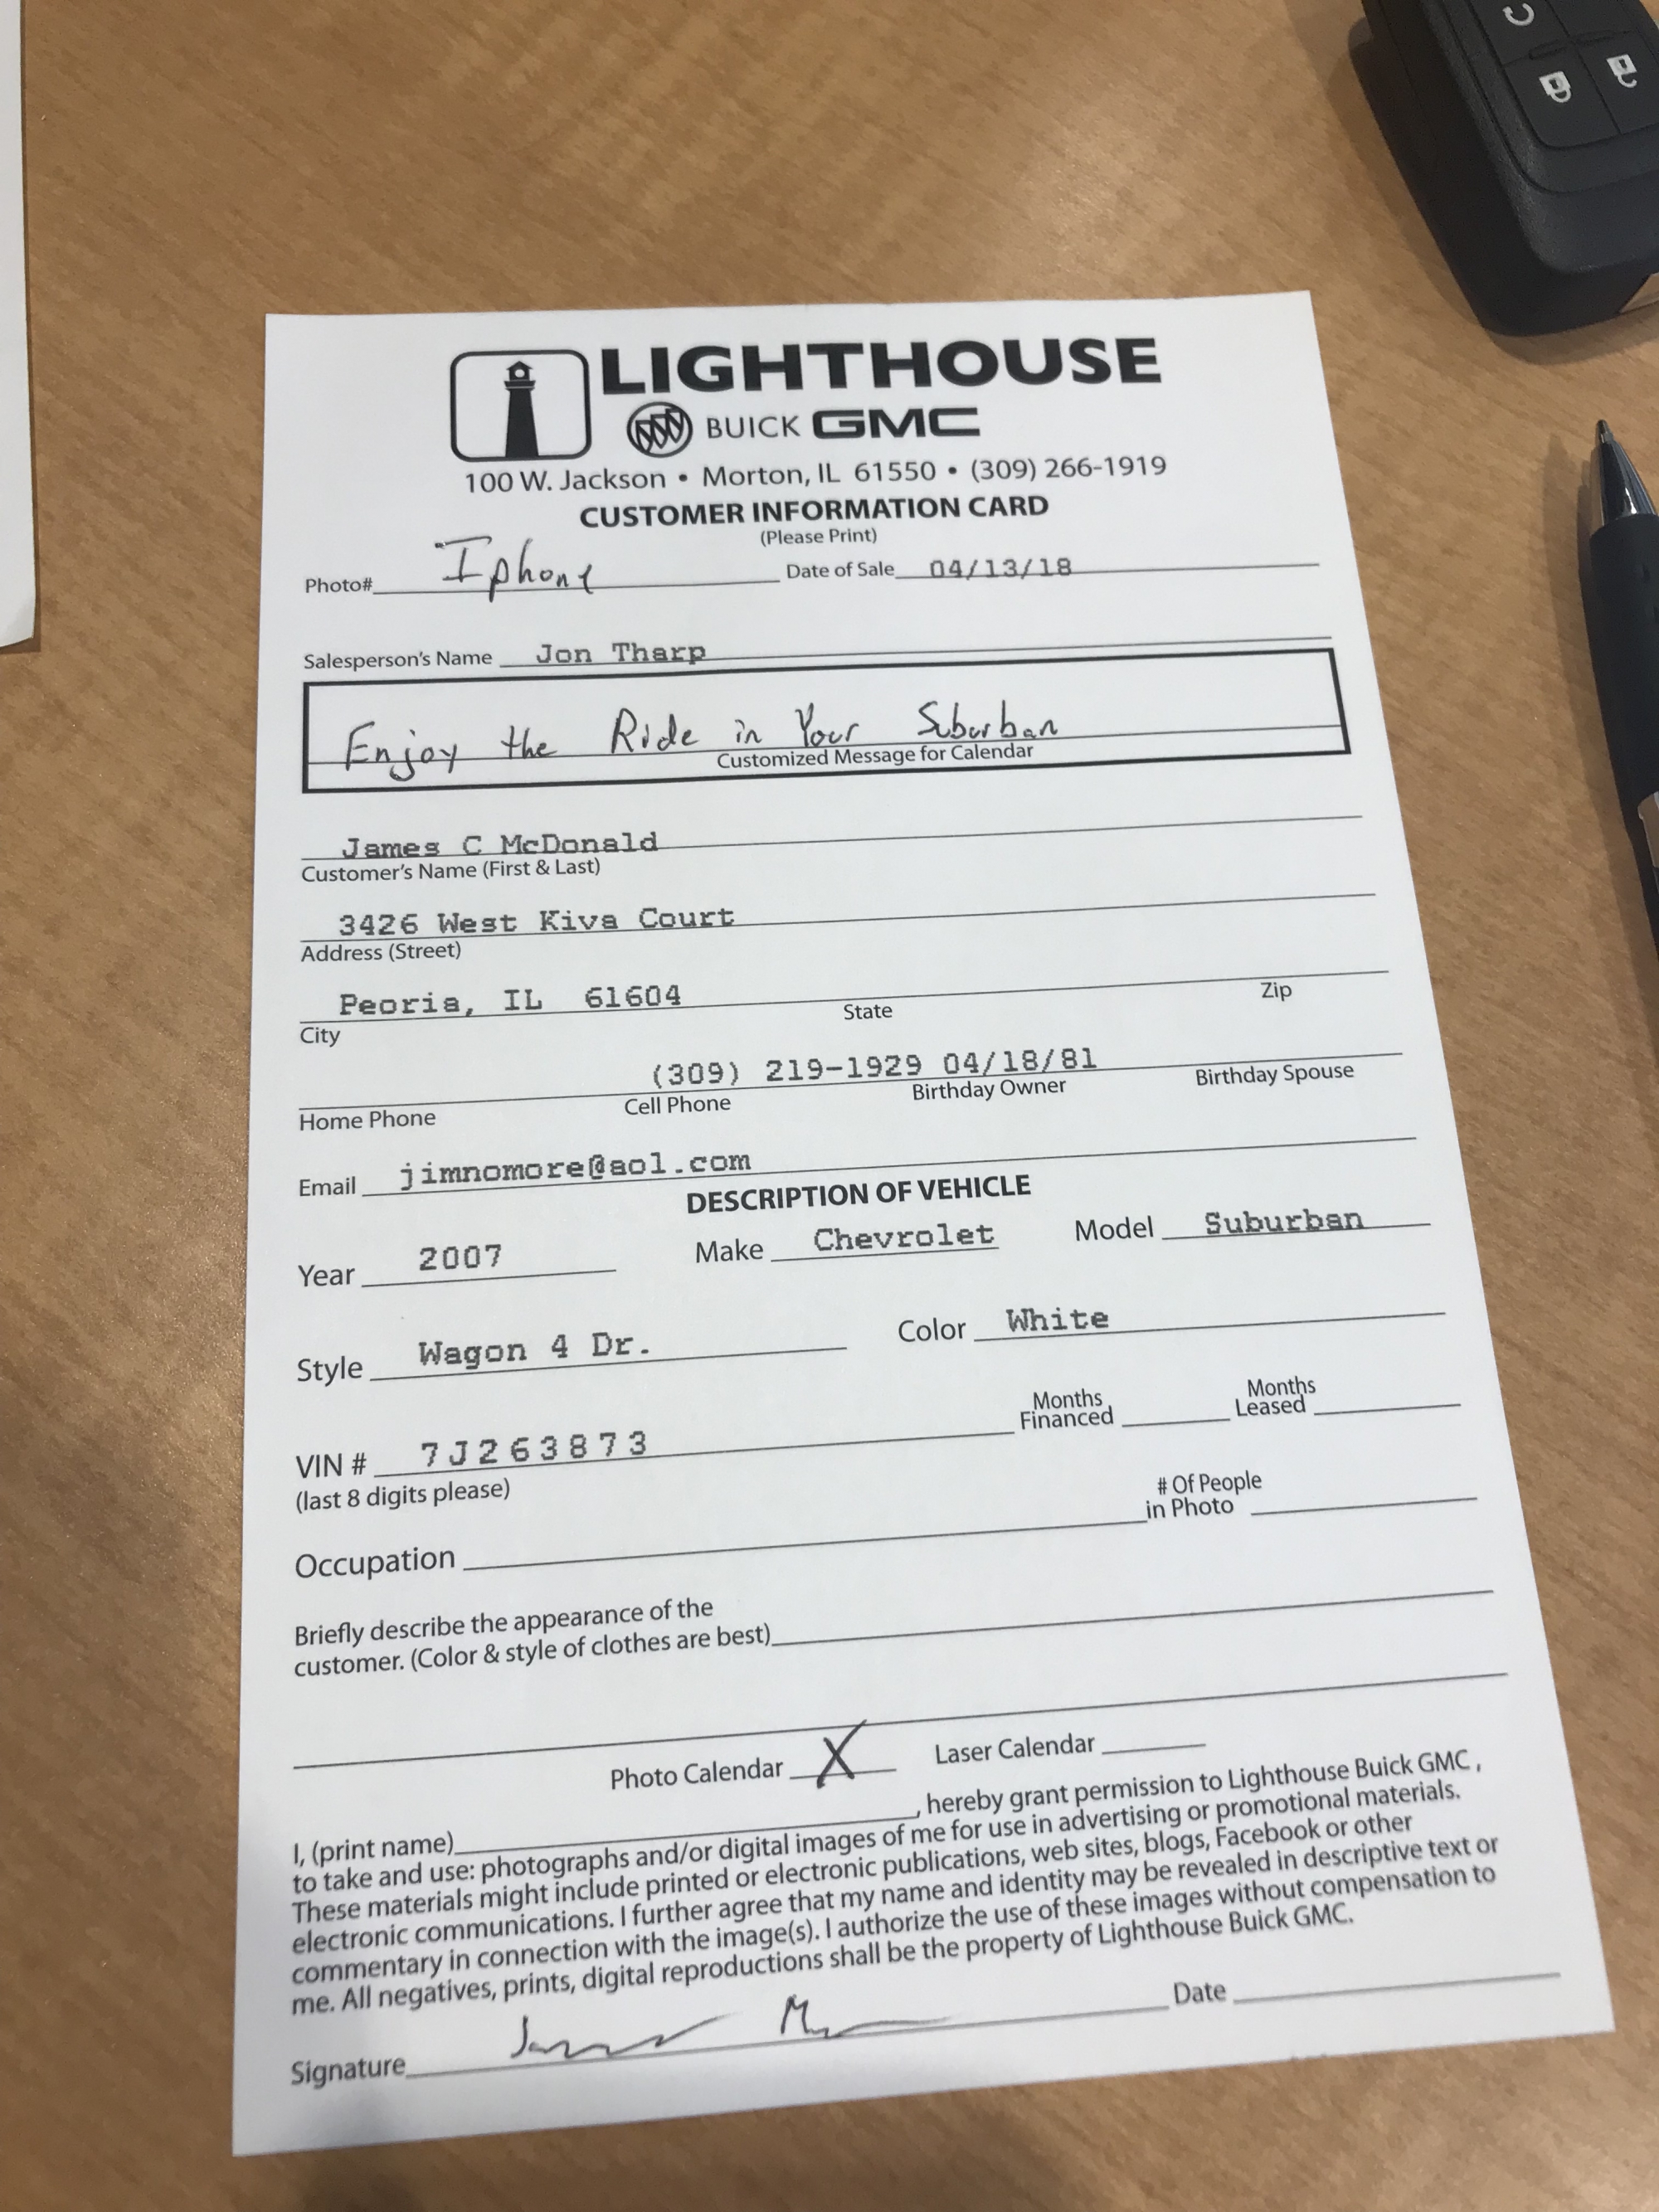 LIGHTHOUSE
BUICK GMC
100 W. Jackson • Morton, IL 61550 • (309) 266-1919
CUSTOMER INFORMATION CARD
(Please Print)
Photo# Iphone Date of Sale 04/13/18
Salesperson's Name Jon Tharp
Enjoy the Ride in Your Suburban
Customized Message for Calendar
James C McDonald
Customer's Name (First & Last)
3426 West Kiva Court
Address (Street)
Peoria, IL 61604
City State Zip
(309) 219-1929 04/18/81
Home Phone Cell Phone Birthday Owner Birthday Spouse
Email jimnomore@aol.com
DESCRIPTION OF VEHICLE
Year 2007 Make Chevrolet Model Suburban
Style Wagon 4 Dr. Color White
VIN # 7J263873 Months Financed Months Leased
(last 8 digits please)
Occupation # Of People in Photo
Briefly describe the appearance of the
customer. (Color & style of clothes are best)
Photo Calendar X Laser Calendar
I, (print name) , hereby grant permission to Lighthouse Buick GMC ,
to take and use: photographs and/or digital images of me for use in advertising or promotional materials.
These materials might include printed or electronic publications, web sites, blogs, Facebook or other
electronic communications. I further agree that my name and identity may be revealed in descriptive text or
commentary in connection with the image(s). I authorize the use of these images without compensation to
me. All negatives, prints, digital reproductions shall be the property of Lighthouse Buick GMC.
Signature Date